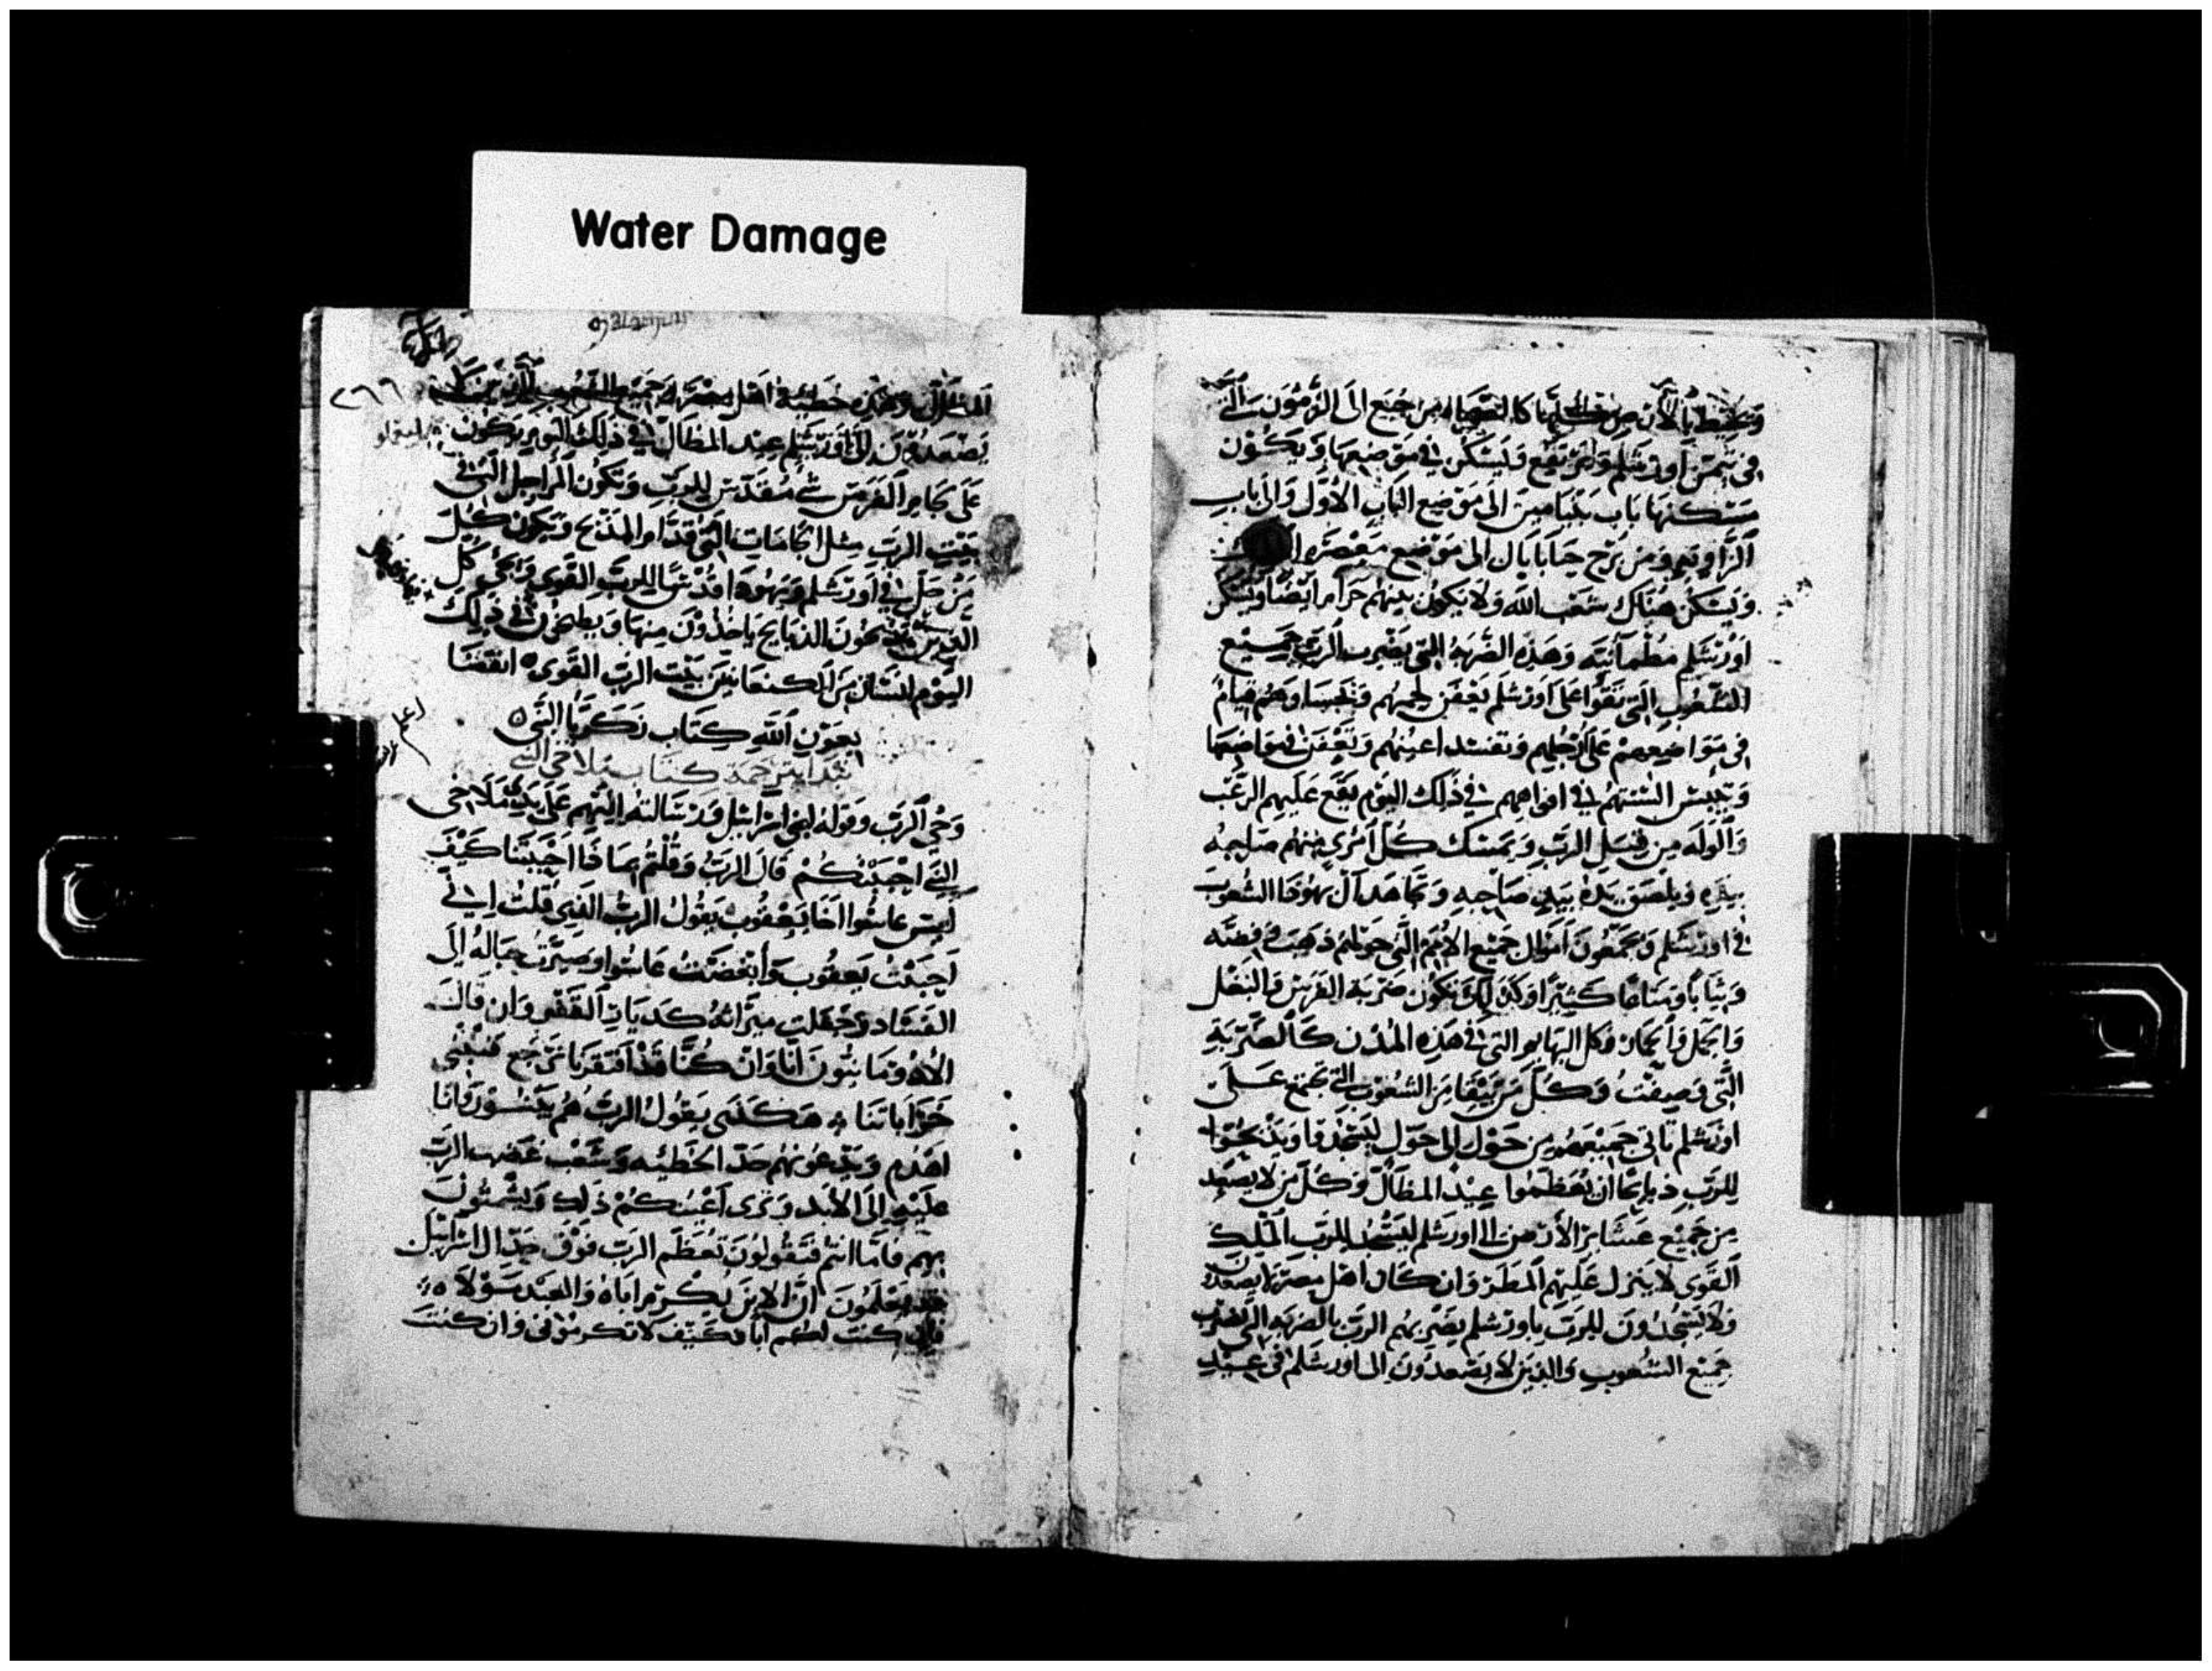 Water Damage
في تيمن اورشلم وترتفع وتسكن في موضعها ويكون
مسكنها باب بنيامين الى موضع الباب الاول والى باب
الزاويه ومن برج حنابال الى موضع معصره
ويسكن هناك شعب الله ولا يكون بينهم حراما ايضا وتسكن
اورشلم مطمانيه وهذه الضربه التي يضرب الرب جميع
الشعوب التي تقوا على اورشلم يعفن لحمهم وهم قيام
في مواضعهم على ارجلهم وتفسد اعينهم وتعفن في مواضعها
وتجبس السنتهم في افواههم في ذلك اليوم يقع عليهم الرعب
والوله من قبل الرب ويمسك كل امرئ منهم صاحبه
بيده ويلصق يده بيد صاحبه وتجاهد ال يهودا الشعوب
في اورشلم ويجمعون اموال جميع الامم التي حولهم ذهب وفضه
وثيابا ومتاعا كثيرا وكذلك تكون ضربة الفرس والبغل
والجمل والحمار وكل البهايم التي في هذه المدن كالضربة
التي وصفت وكل من يبقا من الشعوب التي تجتمع على
اورشلم تاتي جميعهم من حول الى حول ليسجدوا ويذبحوا
للرب ذبايحا ان يعظموا عيد المظال وكل من لا يصعد
من جميع عشاير الارض الى اورشلم ليسجد للرب الملك
القوى لا ينزل عليهم المطر وان كان اهل مصر لا يصعدون
ولا يسجدون للرب باورشلم يضربهم الرب بالضربه التي يضرب
جميع الشعوب والذين لا يصعدون الى اورشلم في عيد
المظال وهذه خطيئة اهل مصر وجميع الشعوب الذين
يصعدون الى اورشلم عيد المظال في ذلك اليوم يكون
على لجام الفرس شي مقدس للرب وتكون المراجل التي في
بيت الرب مثل الجامات التي قدام المذبح ويكون كل
من حل في اورشلم ويهودا قدسا للرب القوى ويجي كل
الذين يذبحون الذبايح ياخذون منها ويطبخون في ذلك
اليوم انسان من الكنعانيين بيت الرب القوى انقضا
بعون الله كتاب زكريا النبي
نبدا بترجمة كتاب ملاخي النبي
وحي الرب وقوله لبني اسرائيل ورسالته اليهم على يدي ملاخي
النبي احببتكم قال الرب وقلتم بماذا احببتنا كيف
ليس عاسوا اخا يعقوب يقول الرب الذي قلت اني
احببت يعقوب وابغضت عاسوا وصيرت جباله الى
الفساد وجعلت ميراثه كديات القفر وان قالت
الادومانيون انا وان كنا قد افتقرنا نرجع فنبني
خراباتنا هكذى يقول الرب هم يبنون وانا
اهدم ويدعونهم حد الخطيئه وشعب غضب الرب
عليه الى الابد وترى اعينكم ذلك
بهم فاما انتم فتقولون تعظم الرب فوق حد ال اسرايل
تعلمون ان الابن يكرم اباه والعبد مولاه
فان كنت لكم ابا فكيف لا تكرموني وان كنت